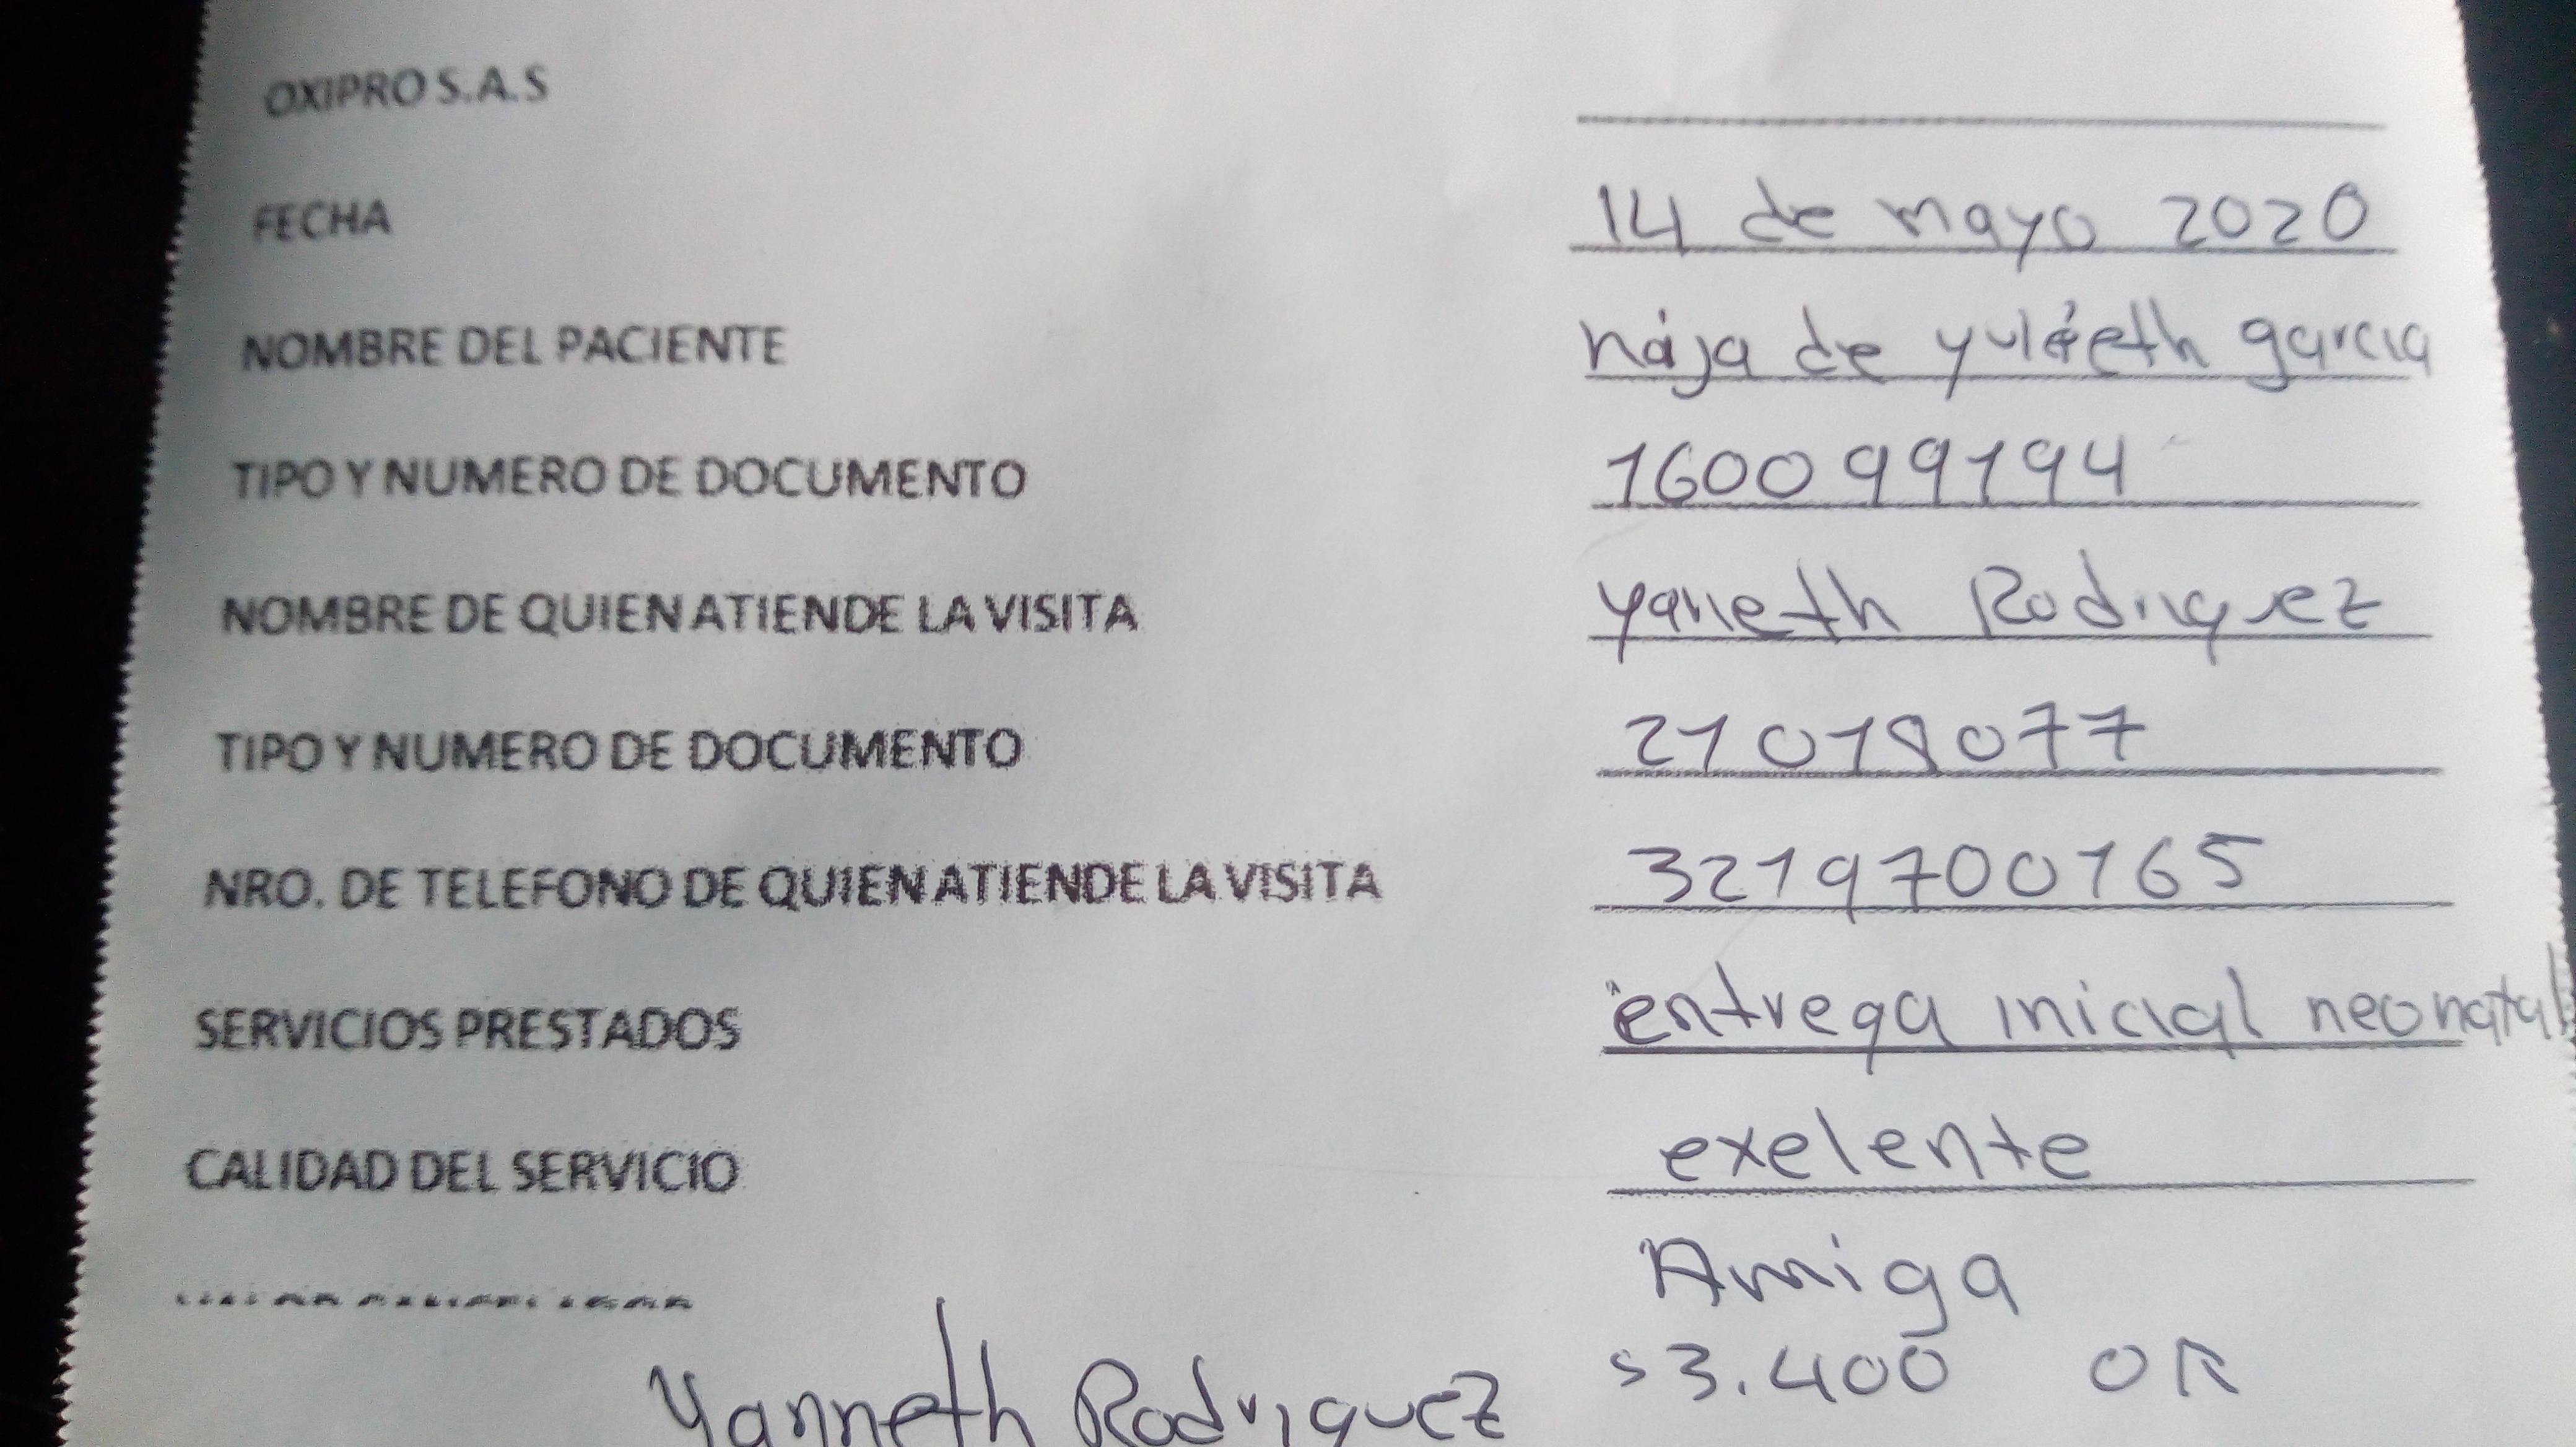 OXIPRO S.A.S
FECHA 14 de mayo 2020
NOMBRE DEL PACIENTE hija de yulieth garcia
TIPO Y NUMERO DE DOCUMENTO 160099194
NOMBRE DE QUIEN ATIENDE LA VISITA yaneth Rodriguez
TIPO Y NUMERO DE DOCUMENTO 21019077
NRO. DE TELEFONO DE QUIEN ATIENDE LA VISITA 3219700165
SERVICIOS PRESTADOS entrega inicial neonatal
CALIDAD DEL SERVICIO exelente
Amiga
$3.400 OR
Yanneth Rodriguez